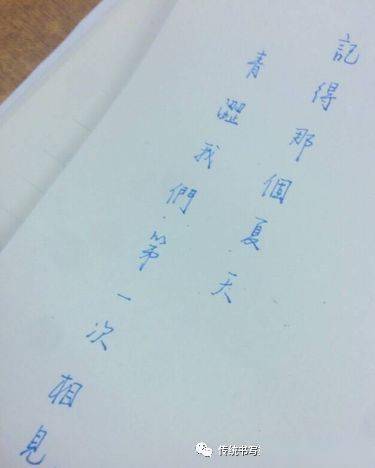 記得那個夏天
青澀我們第一次相見
传统书写